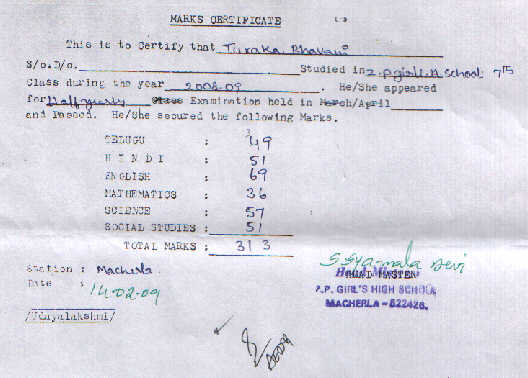 MARKS CERTIFICATE
This is to Certify that Turaka Bhavani
S/o.D/o. Studied in Z.P.girls.H School 7th
Class during the year 2008-09. He/She appeared
for Halfyearly Class Examination held in March/April
and Passed. He/She secured the following Marks.
TELUGU : 49
HINDI : 51
ENGLISH : 69
MATHEMATICS : 36
SCIENCE : 57
SOCIAL STUDIES : 51
TOTAL MARKS : 313
Station : Macherla
Date : 14-02-09
S Syamala Devi
HEAD MASTER
Z.P. GIRL'S HIGH SCHOOL
MACHERLA - 522426.
/Udayalakshmi/